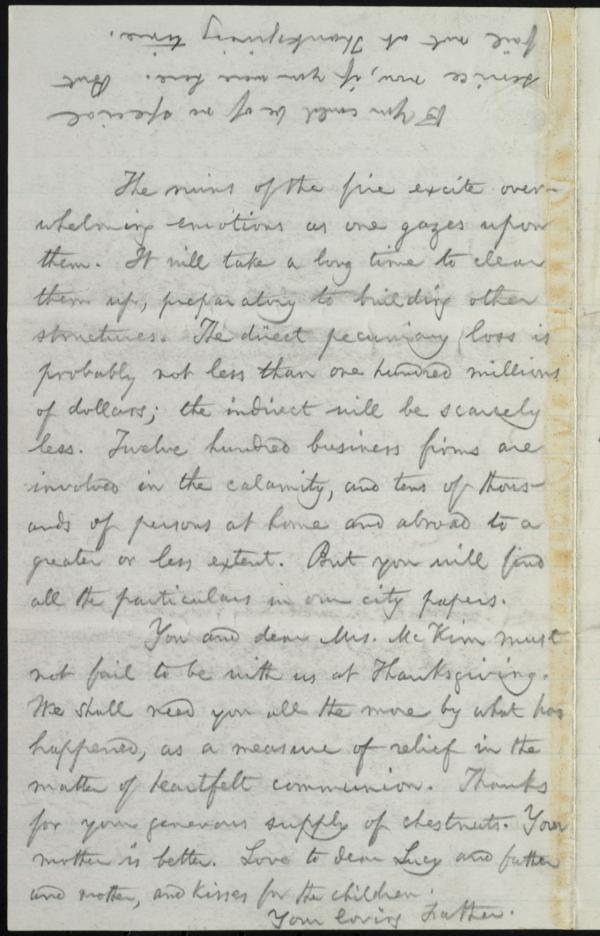 The ruins of the fire excite over-
whelming emotions as one gazes upon
them. It will take a long time to clear
them up, preparatory to building other
structures. The direct pecuniary loss is
probably not less than one hundred millions
of dollars; the indirect will be scarcely
less. Twelve hundred business firms are
involved in the calamity, and tens of thous-
ands of persons at home and abroad to a
greater or less extent. But you will find
all the particulars in our city papers.
You and dear Mrs. McKim must
not fail to be with us at Thanksgiving.
We shall need you all the more by what has
happened, as a measure of relief in the
matter of heartfelt communion. Thanks
for your generous supply of chestnuts. Your
mother is better. Love to dear Lucy and father
and mother, and kisses for the children.
Your loving Father.
You could be of no special
service now, if you were here. But
fail not at Thanksgiving time.